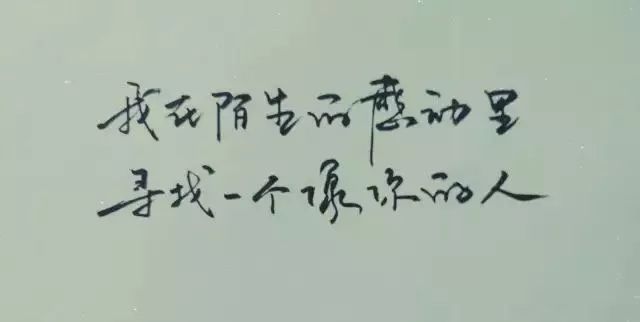 我在陌生的感动里
寻找一个像你的人